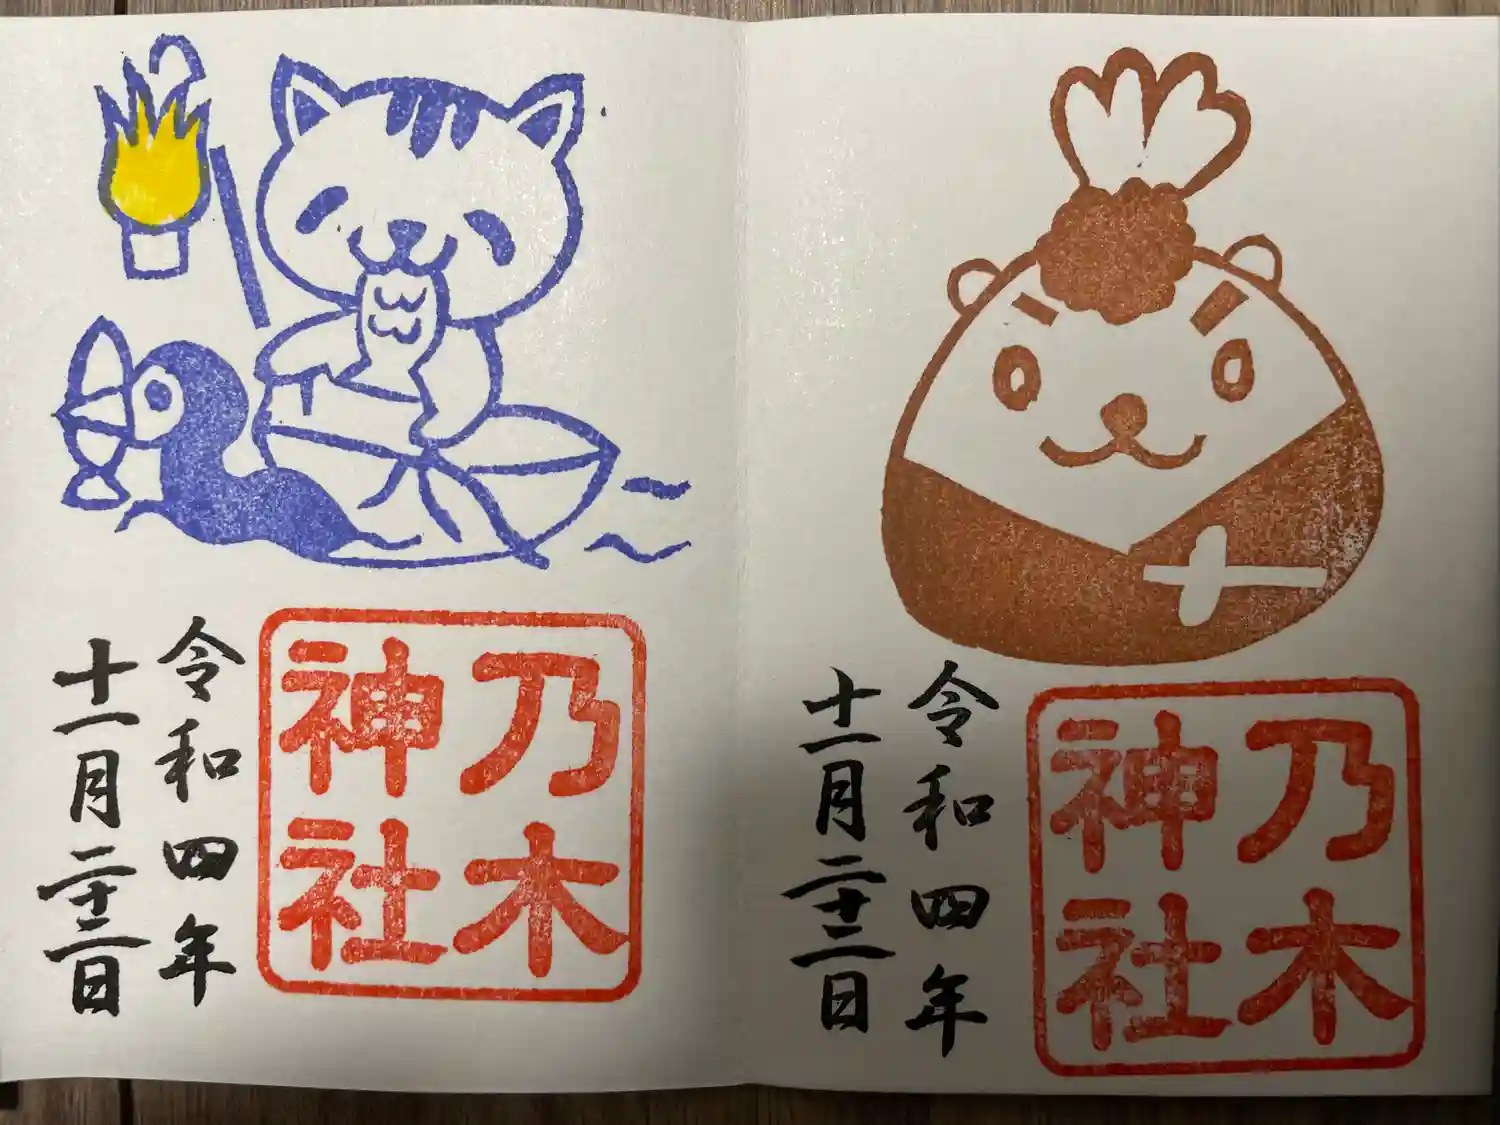 乃木
神社
令和四年
十一月二十三日
乃木
神社
令和四年
十一月二十三日